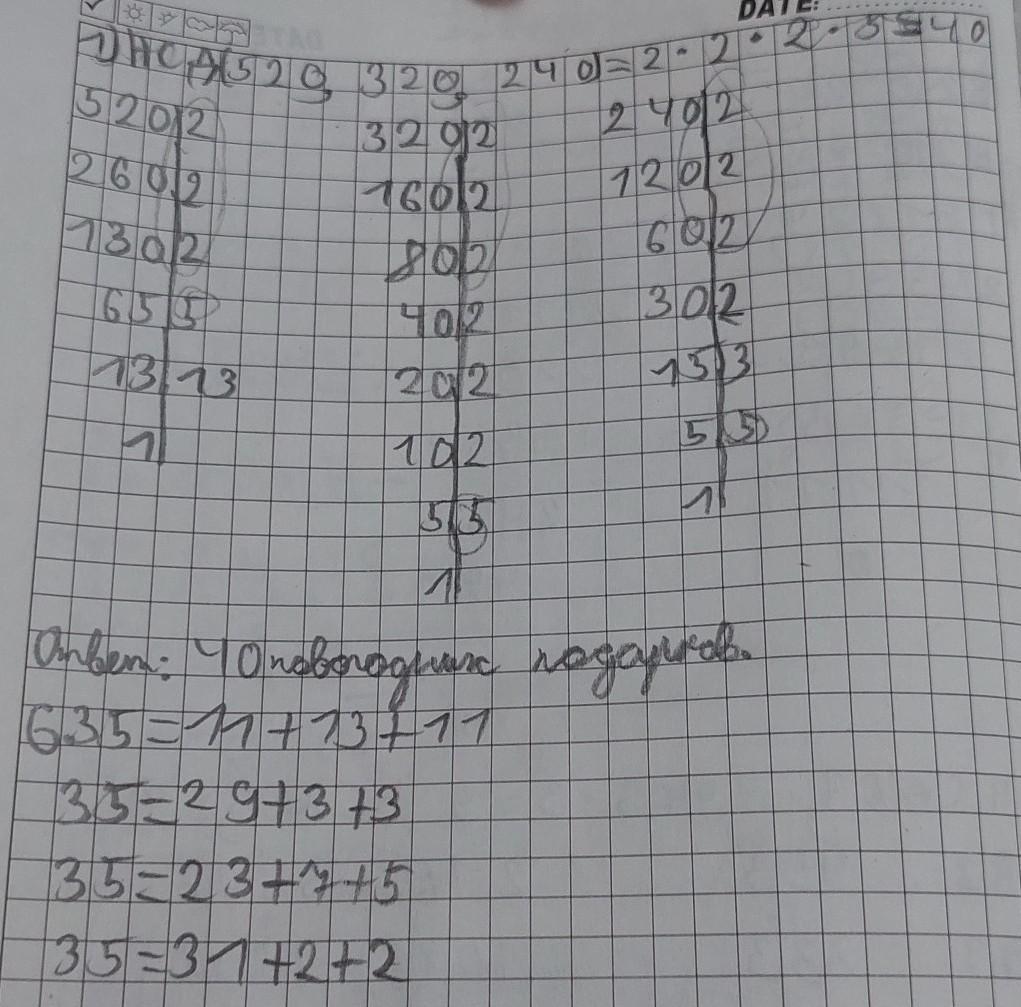 DATE:
1) НСД(520, 320, 240)=2·2·2·5=40
520|2 320|2 240|2
260|2 160|2 120|2
130|2 80|2 60|2
65|5 40|2 30|2
13|13 20|2 15|3
1| 10|2 5|5
5|5 1|
1|
Ответ: 40 новогодних подарков.
6.35=11+13+11
35=29+3+3
35=23+7+5
35=31+2+2